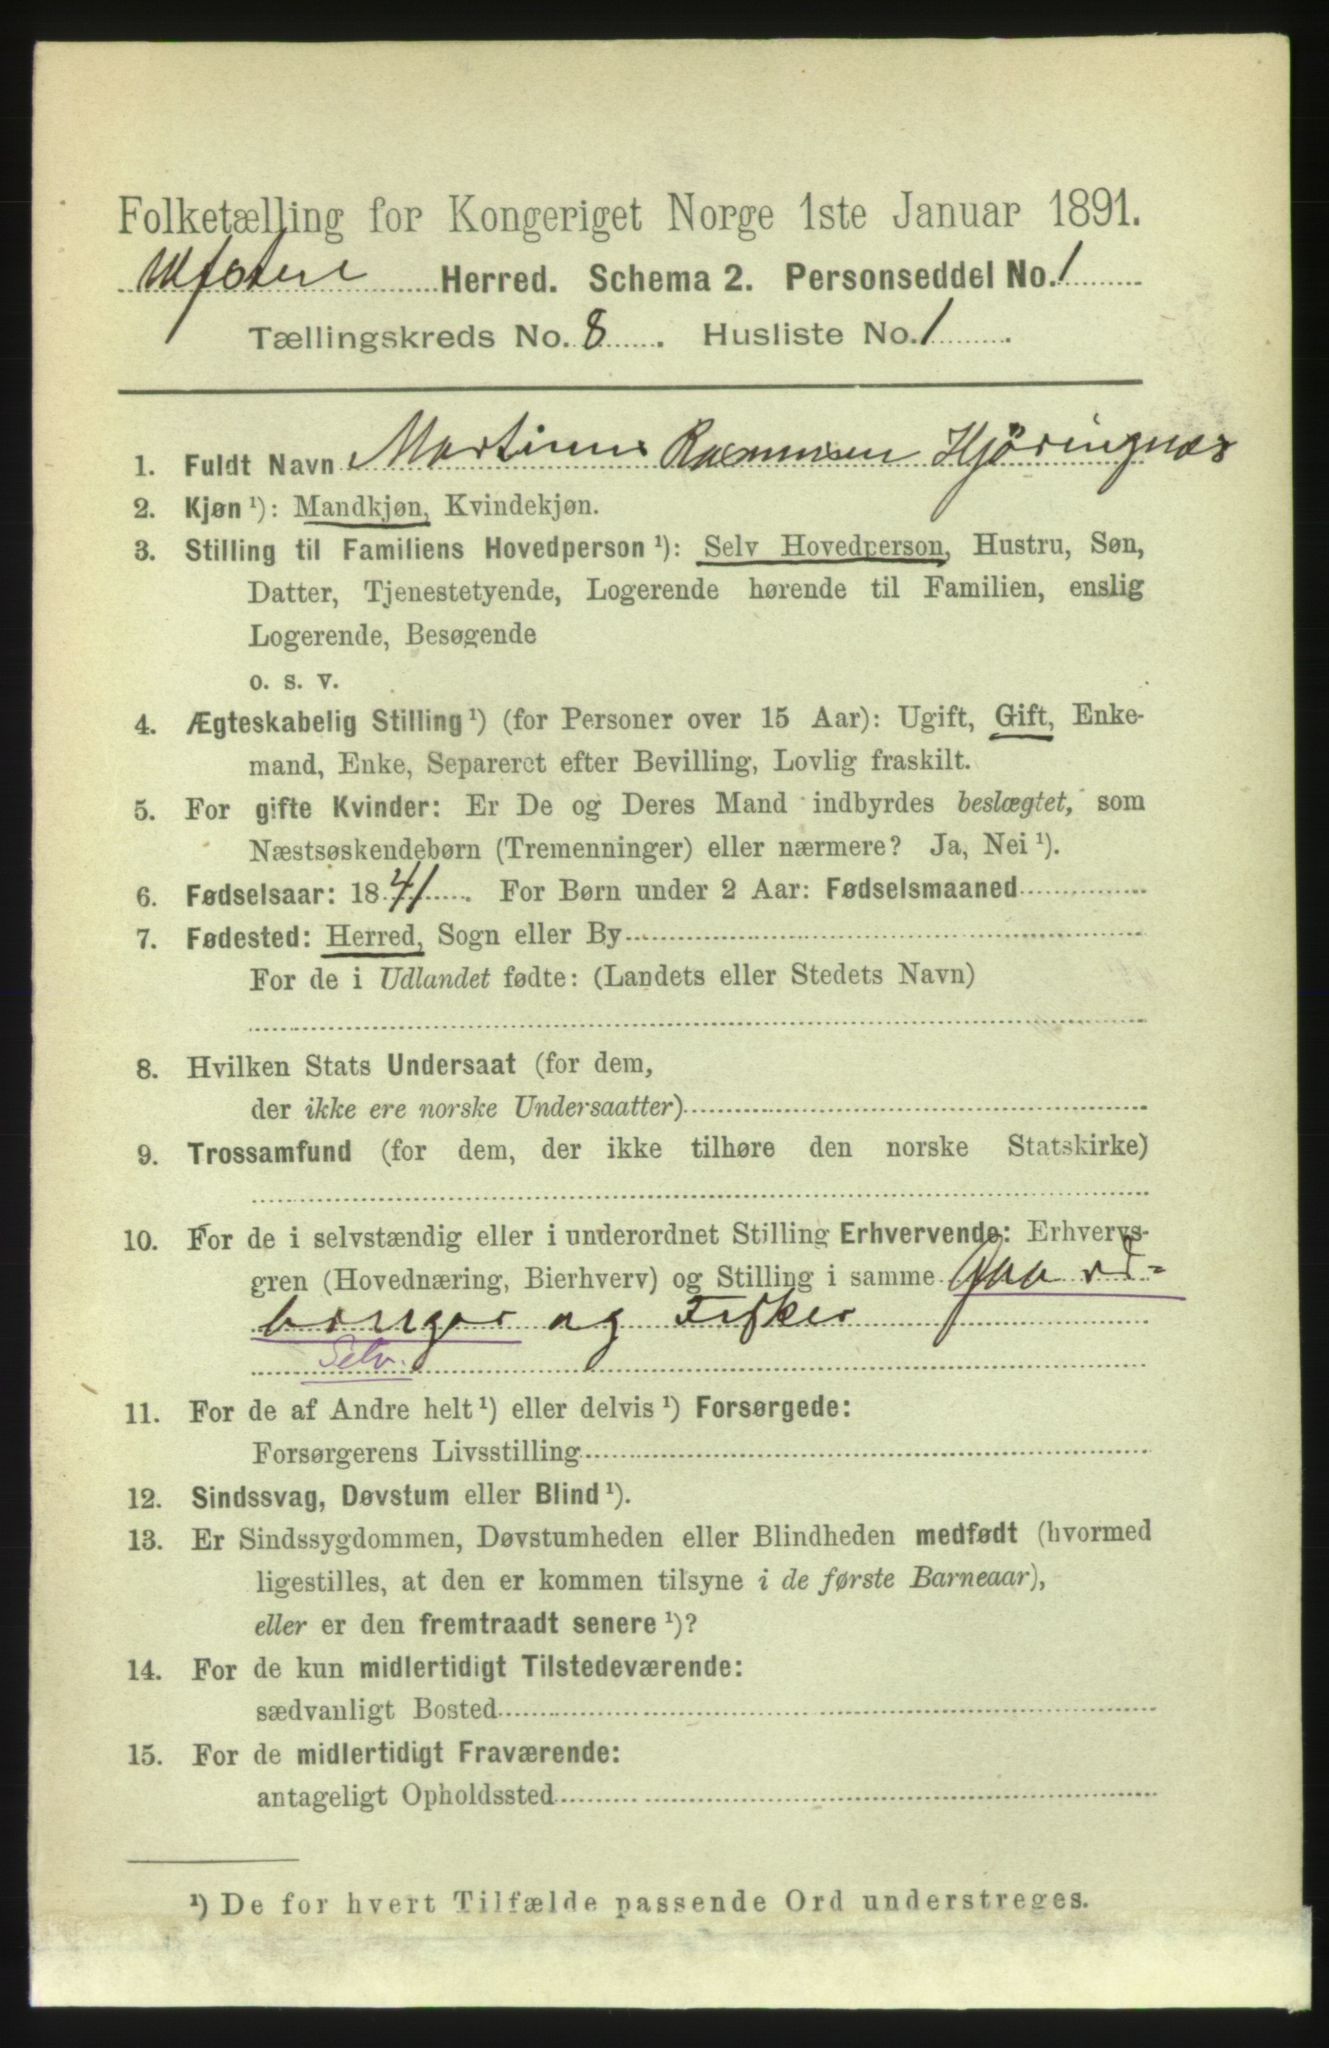 Folketælling for Kongeriget Norge 1ste Januar 1891.
Ulfsten Herred. Schema 2. Personseddel No. 1
Tællingskreds No. 8. Husliste No. 1.
1. Fuldt Navn Martinus Rasmussen Hjøringnæs
2. Kjøn ¹): Mandkjøn, Kvindekjøn.
3. Stilling til Familiens Hovedperson ¹): Selv Hovedperson, Hustru, Søn,
Datter, Tjenestetyende, Logerende hørende til Familien, enslig
Logerende, Besøgende
o. s. v.
4. Ægteskabelig Stilling ¹) (for Personer over 15 Aar): Ugift, Gift, Enke-
mand, Enke, Separeret efter Bevilling, Lovlig fraskilt.
5. For gifte Kvinder: Er De og Deres Mand indbyrdes beslægtet, som
Næstsøskendebørn (Tremenninger) eller nærmere? Ja, Nei ¹).
6. Fødselsaar: 1841. For Børn under 2 Aar: Fødselsmaaned
7. Fødested: Herred, Sogn eller By
For de i Udlandet fødte: (Landets eller Stedets Navn)
8. Hvilken Stats Undersaat (for dem,
der ikke ere norske Undersaatter)
9. Trossamfund (for dem, der ikke tilhøre den norske Statskirke)
10. For de i selvstændig eller i underordnet Stilling Erhvervende: Erhvervs-
gren (Hovednæring, Bierhverv) og Stilling i samme Gaard-
bruger og Fisker
Selv.
11. For de af Andre helt ¹) eller delvis ¹) Forsørgede:
Forsørgerens Livsstilling
12. Sindssvag, Døvstum eller Blind ¹).
13. Er Sindssygdommen, Døvstumheden eller Blindheden medfødt (hvormed
ligestilles, at den er kommen tilsyne i de første Barneaar),
eller er den fremtraadt senere ¹)?
14. For de kun midlertidigt Tilstedeværende:
sædvanligt Bosted
15. For de midlertidigt Fraværende:
antageligt Opholdssted
¹) De for hvert Tilfælde passende Ord understreges.